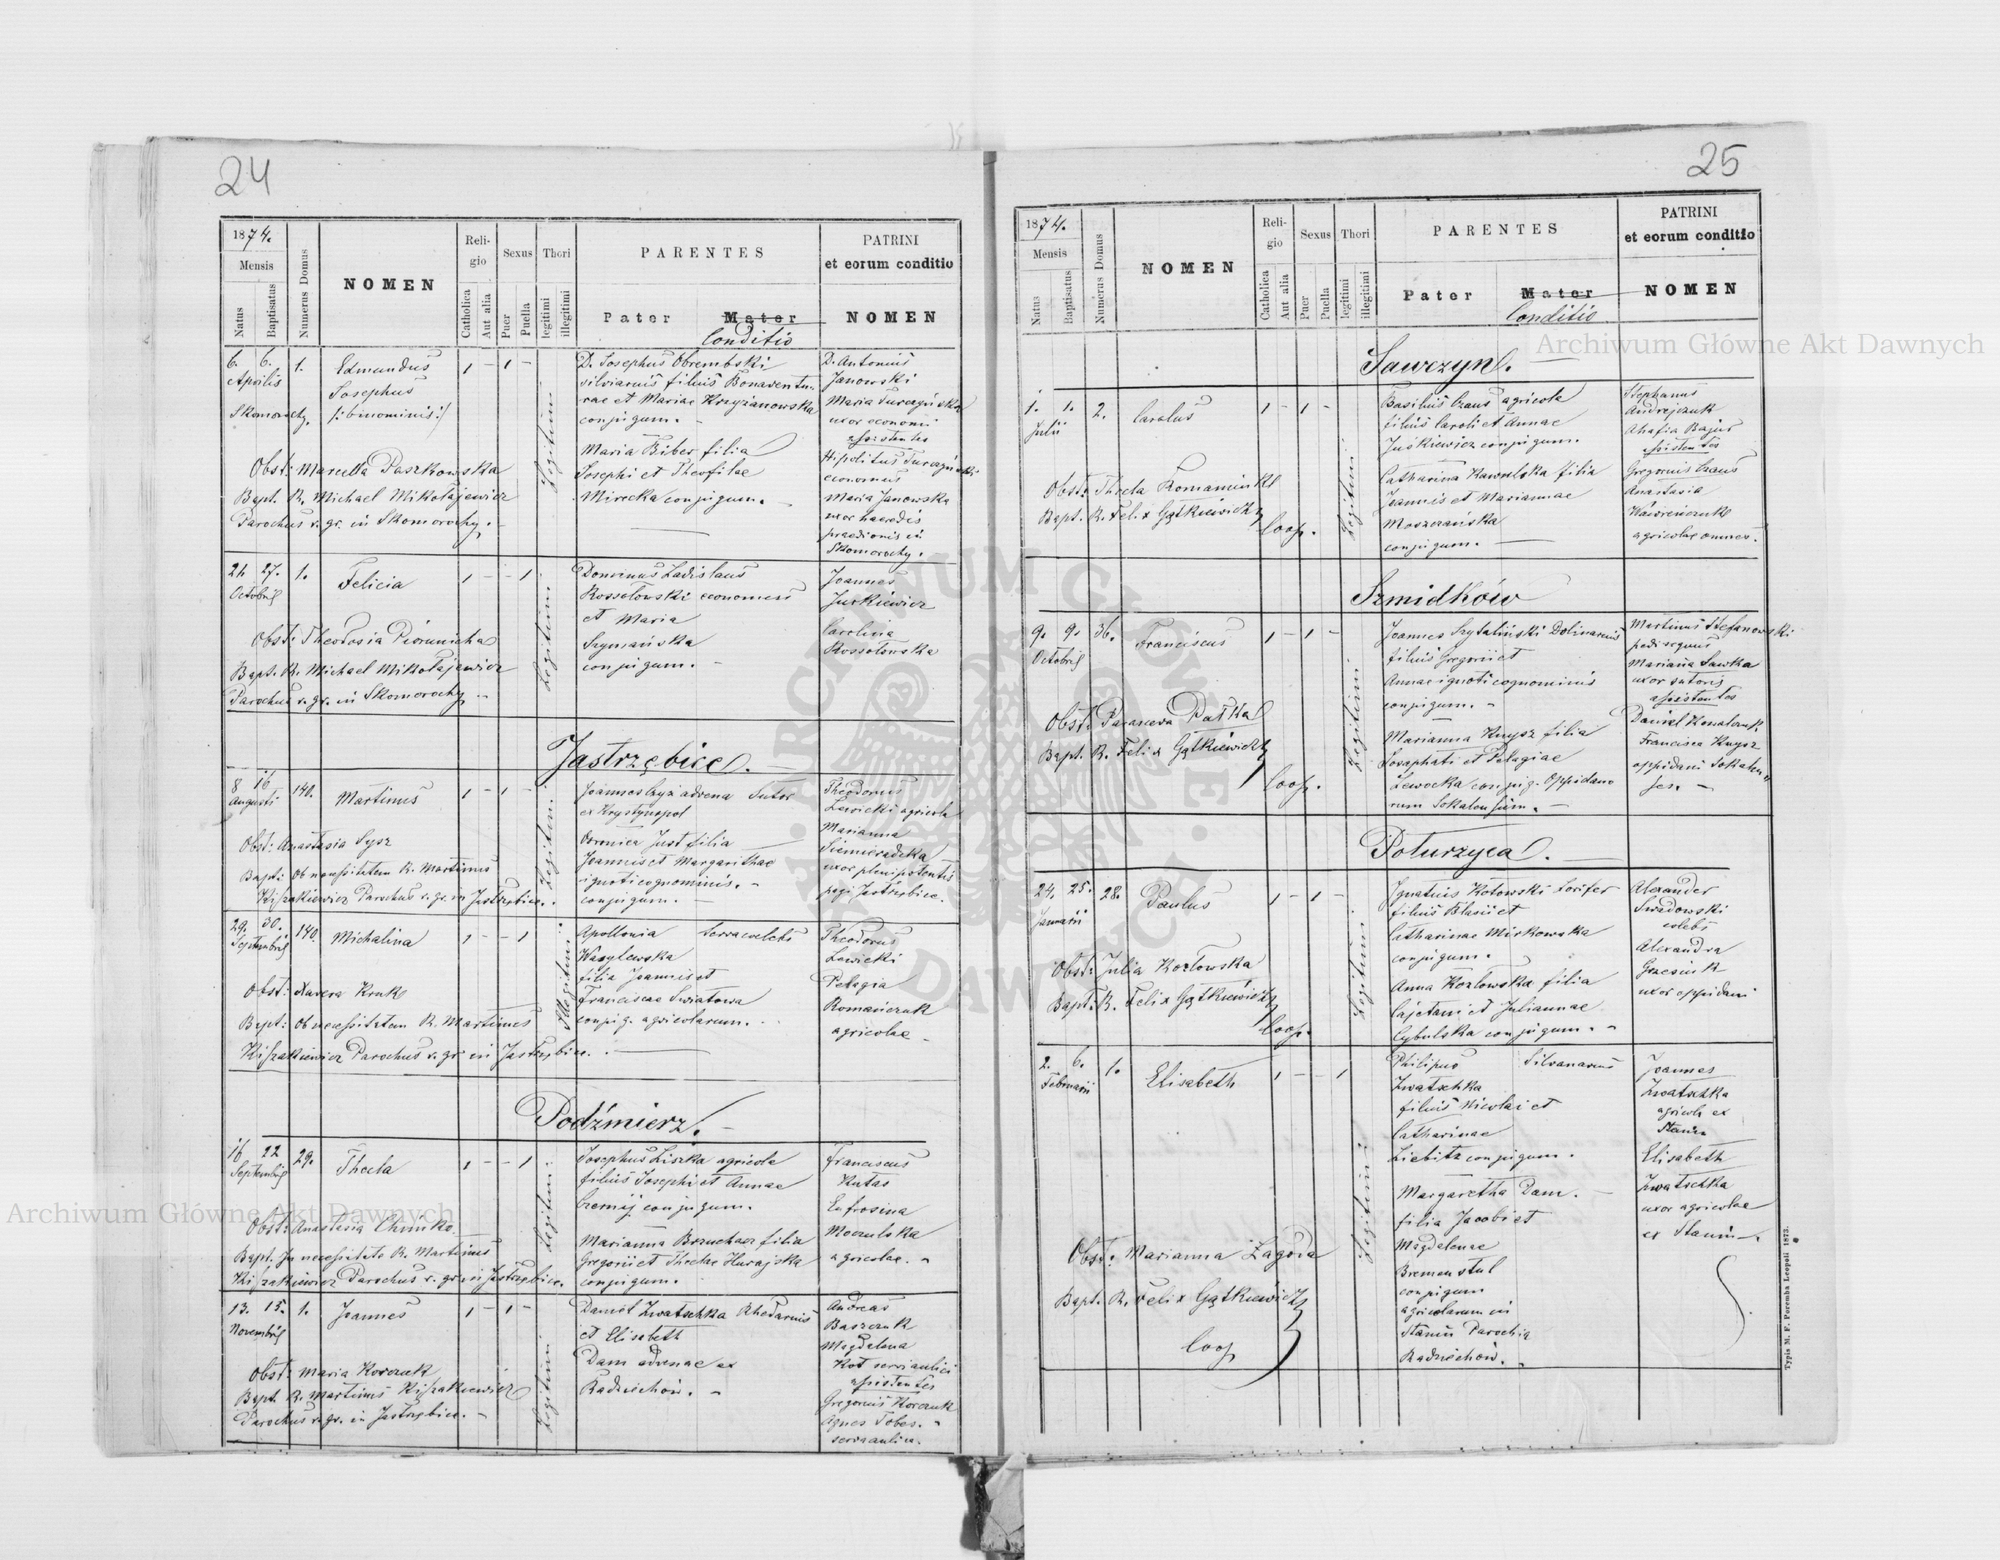 24
1874.
Mensis
Natus
Baptisatus
Numerus Domus
NOMEN
Religio
Catholica
Aut alia
Sexus
Puer
Puella
Thori
legitimi
illegitimi
PARENTES
Pater
Mater
Conditio
PATRINI
et eorum conditio
NOMEN
6. 6. 1.
Aprilis
Skomorochy.
Edmundus
Josephus
/:binominis:/
1 - 1 -
Legitimi
D. Josephus Obrembski
silviarius filius Bonaventu-
rae et Mariae Krzyżanowska
conjugum. -
Maria Biber filia
Josephi et Theofilae
Mirecka conjugum. -
D. Antonius
Janowski
Maria Turczyńska
uxor economi
assistentes
Hipolitus Turczyński
economus
Maria Janowska
uxor haeredis
praedionis in
Skomorochy.
Obst: Marcella Paszkowska
Bapt. R. Michael Mikołajewicz
Parochus r. gr. in Skomorochy. -
21. 27. 1.
Octobris
Felicia
1 - - 1
Legitimi
Dominus Ladislaus
Rossołowski economus
et Maria
Szymańska
conjugum. -
Joannes
Jurkiewicz
Carolina
Rossołowska
Obst: Theodosia Piorunicha
Bapt. R. Michael Mikołajewicz
Parochus r. gr. in Skomorochy -
Jastrzębice. -
8 16 140.
Augusti
Martinus
1 - 1 -
Legitimi
Joannes Czyż advena Sutor
ex Krystynopol
Veronica Just filia
Joannis et Margarithae
ignoti cognominis. -
conjugum. -
Theodorus
Lewicki agricola
Marianna
Siemieradzka
uxor plenipotentis
pagi Jastrzębice.
Obst: Anastasia Sysz
Bapt: Ob necessitatem R. Martinus
Kiszakiewicz Parochus r. gr. in Jastrzębice.
29. 30. 140.
Septembris
Michalina
1 - - 1
Illegitimi
Apollonia Serva celebs
Wasylewska
filia Joannis et
Franciscae Swiatowa
conjug. agricolarum.
Theodorus
Lewicki
Pelagia
Romańczuk
agricolae -
Obst: Xavera Kruk
Bapt: Ob necessitatem R. Martinus
Kiszakiewicz Parochus r. gr. in Jastrzębice.
Podźmierz. -
16 22 29.
Septembris
Thecla
1 - - 1
Legitimi
Josephus Liszka agricola
filius Josephi et Annae
Czernij conjugum.
Marianna Brzuchacz filia
Gregorii et Theclae Hurajska
conjugum.
Franciscus
Kutas
Eufrosina
Moczulska
agricolae. -
Obst: Anastasia Chimko
Bapt. In necessitate R. Martinus
Kiszakiewicz Parochus r. gr. in Jastrzębice.
13. 15. 1.
Novembris
Joannes
1 - 1 -
Legitimi
Daniel Zwatschka Rhedarius
et Elisabeth
Dam advenae ex
Radziechów. -
Andreas
Baszczuk
Magdalena
Kot servi aulici
assistentes
Gregorius Korczuk
Agnes Tobes. -
servi aulici.
Obst: Maria Korczuk
Bapt. R. Martinus Kiszakiewicz
Parochus r. gr. in Jastrzębice. -
25
1874.
Mensis
Natus
Baptisatus
Numerus Domus
NOMEN
Religio
Catholica
Aut alia
Sexus
Puer
Puella
Thori
legitimi
illegitimi
PARENTES
Pater
Mater
Conditio
PATRINI
et eorum conditio
NOMEN
Sawczyn. -
1. 1. 2.
Julii
Carolus
1 - 1 -
Legitimi
Basilius Czaus agricola
filius Caroli et Annae
Juśkiewicz conjugum.
Catharina Kawulska filia
Joannis et Mariannae
Moszczańska
conjugum. -
Stephanus
Andrejczuk
Ahafia Bajus
assistentes
Gregorius Czaus
Anastasia
Wawreniczuk
agricolae omnes.
Obst: Thecla Romaniuk
Bapt. R. Felix Gątkiewicz
Coop.
Szmidków
9. 9. 36.
Octobris
Franciscus
1 - 1 -
Legitimi
Joannes Szytaliński Doliarius
filius Gregorii et
Annae ignoti cognominis
conjugum. -
Marianna Knysz filia
Josaphati et Pelagiae
Lewocka conjug. Oppidano
rum Sokaliensium. -
Martinus Stefanowski
pedisequus
Marianna Sawka
uxor sutoris
assistentes
Daniel Kowalczuk
Francisca Knysz
oppidani Sokalien
ses. -
Obst: Parasceva Patka
Bapt. R. Felix Gątkiewicz
Coop.
Poturzyca. -
24. 25. 28.
Januarii
Paulus
1 - 1 -
Legitimi
Ignatius Kotowski Lorifex
filius Blasii et
Catharinae Mirkowska
conjugum. -
Anna Kozłowska filia
Cajetani et Juliannae
Cybulska conjugum. -
Alexander
Swadowski
celebs
Alexandra
Grzesiuk
uxor oppidani
Obst: Julia Kozłowska
Bapt: R. Felix Gątkiewicz
Coop.
2. 6. 1.
Februarii
Elisabeth
1 - - 1
Legitimi
Philipus Silvanarius
Zwatschka
filius Nicolai et
Catharinae
Liebitz conjugum.
Margaretha Dam. -
filia Jacobi et
Magdalenae
Bremenstul
conjugum
agricolarum in
Stanin Parochia
Radziechów. -
Joannes
Zwatschka
agricola ex
Stanin
Elisabeth
Zwatschka
uxor agricolae
ex Stanin -
Obst: Marianna Zagóra
Bapt. R. Felix Gątkiewicz
Coop
Typis M. F. Poremba Leopoli 1873.
Archiwum Główne Akt Dawnych
Archiwum Główne Akt Dawnych
ARCHIWUM GŁÓWNE AKT DAWNYCH